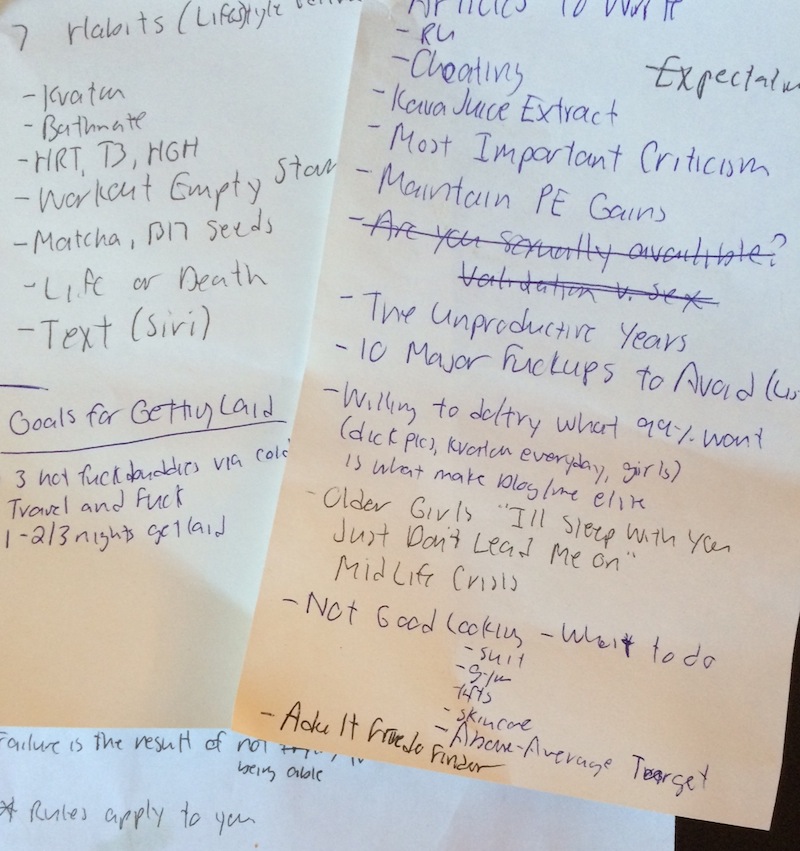 7 Habits (Lifestyle
- Kratm
- Bathmate
- HRT, T3, HGH
- Workout Empty Stom
- Matcha, B17 Seeds
- Life or Death
- Text (Siri)
Goals for Getting Laid
3 hot fuckbuddies via cold
Travel and Fuck
1-2/3 nights get laid
Failure is the result of not
being able
* Rules apply to you
Articles to Write
- RU
- Cheating
Expectatn
- Kava Juice Extract
- Most Important Criticism
- Maintain PE Gains
- Are you sexually availible?
Validation v. Sex
- The Unproductive Years
- 10 Major Fuckups to Avoid (Lis
- Willing to do/try what 99% won't
(dick pics, kratom everyday, girls)
is what make blog/me elite
- Older Girls "I'll Sleep with you
Just Don't Lead Me on"
Midlife Crisis
- Not Good Looking - What to do
- suit
- gym
- lifts
- skincare
- Above-Average Target
- Adult Friend Finder